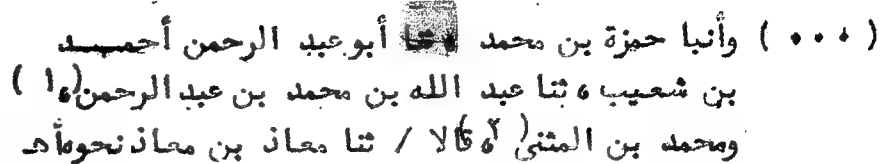 ( ٠٠٠ ) وأنبا حمزة بن محمد ثنا أبو عبد الرحمن أحمد
بن شعيب ، ثنا عبد الله بن محمد بن عبد الرحمن(١) ،
ومحمد بن المثنى(٢) ، قالا / ثنا معاذ بن معاذ نحوه أهـ